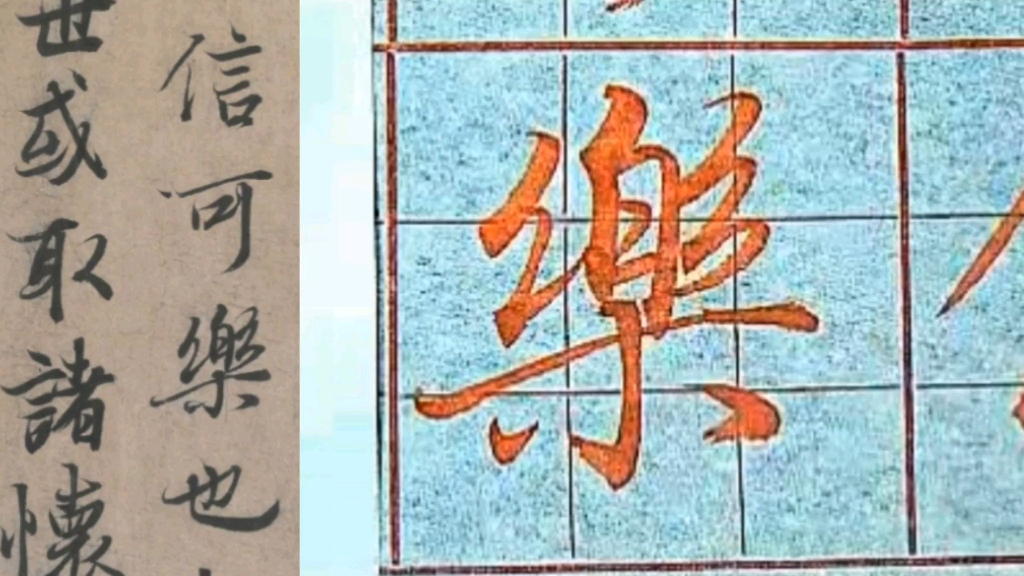 信可樂也
世或取諸懷
樂